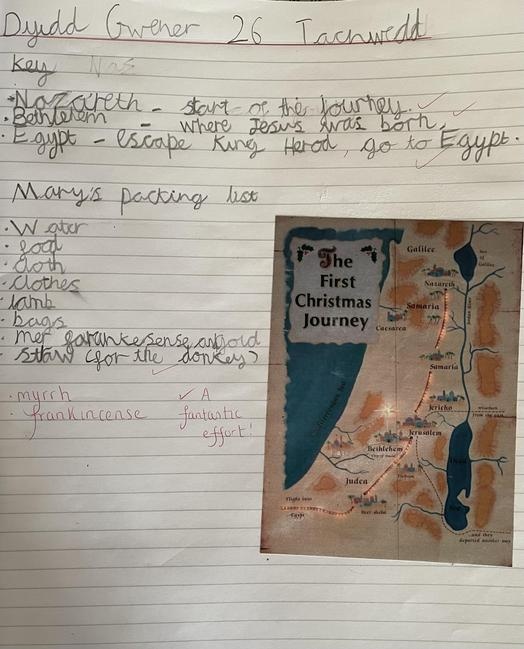 Dydd Gwener 26 Tachwedd
Key Nas
• Nazareth - start of the journey.
• Bethlehem - where Jesus was born,
• Egypt - escape King Herod, go to Egypt.
Mary's packing list
• Water
• food
• cloth
• clothes
lamb
• bags
• mer farankesense angold
• straw (for the donkey)
• myrrh
• frankincense
✓ A
fantastic
effort!
The
First
Christmas
Journey
Galilee
Sea
of
Galilee
Nazareth
Samaria
Caesarea
Jordan River
Samaria
Jericho
Jerusalem
Bethlehem
Mediterranean Sea
Judea
Hebron
Dead
Sea
Flight into
Egypt
Beer sheba
...and they
departed another way